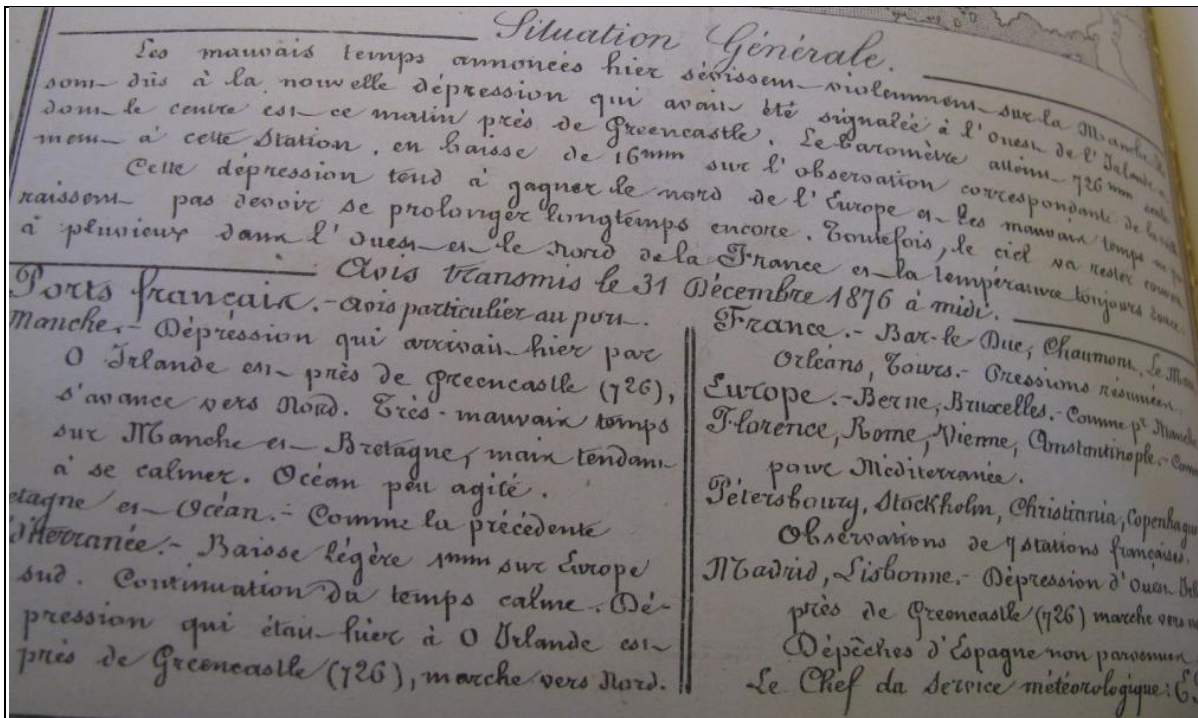 Situation Générale.
Les mauvais temps annoncés hier sévissent violemment sur la Manche
sont dûs à la nouvelle dépression qui avait été signalée à l'Ouest de l'Irlande
dont le centre est ce matin près de Greencastle. Le baromètre atteint 726mm seule-
ment à cette Station, en baisse de 16mm sur l'observation correspondante de la
Cette dépression tend à gagner le nord de l'Europe et les mauvais temps ne pa-
raissent pas devoir se prolonger longtemps encore. Toutefois, le ciel va rester couvert
à pluvieux dans l'Ouest et le Nord de la France et la température toujours douce.
Avis transmis le 31 Décembre 1876 à midi.
Ports français.- Avis particulier au port.
Manche.- Dépression qui arrivait hier par
O Irlande est près de Greencastle (726),
s'avance vers Nord. Très-mauvais temps
sur Manche et Bretagne, mais tendant
à se calmer. Océan peu agité.
etagne et Océan.- Comme la précédente
diterranée.- Baisse légère 1mm sur Europe
sud. Continuation du temps calme. Dé-
pression qui était hier à O Irlande est
près de Greencastle (726), marche vers Nord.
France.- Bar-le Duc, Chaumont, Le Mans
Orléans, Tours.- Pressions résumées.
Europe.- Berne, Bruxelles.- Comme pr Manche
Florence, Rome, Vienne, Constantinople.- Comme
pour Méditerranée.
Pétersbourg, Stockholm, Christiania, Copenhague
Observations de 7 stations françaises.
Madrid, Lisbonne.- Dépression d'Ouest
près de Greencastle (726) marche vers
Dépêches d'Espagne non parvenues
Le Chef du Service météorologique: